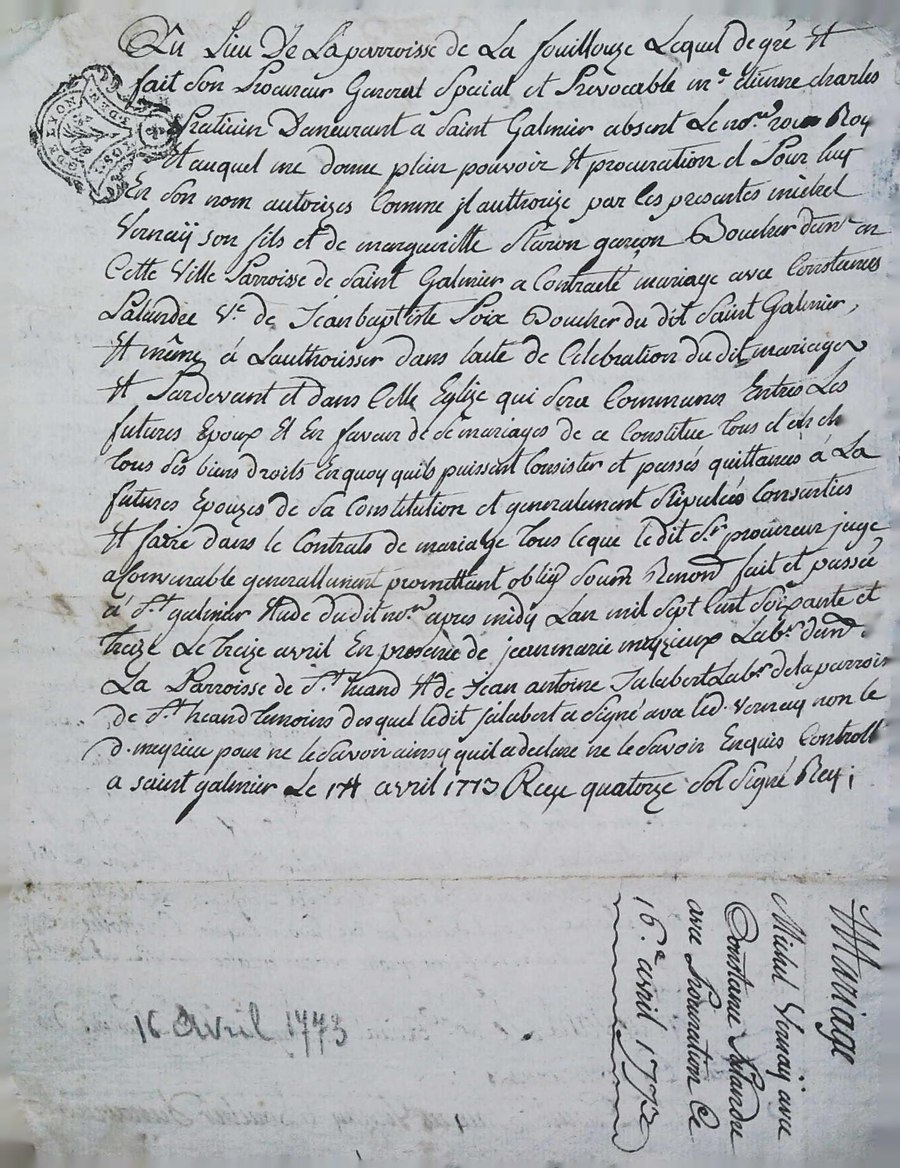 Du Lieu De La parroisse de La fouillouze Lequel de gré Et
fait son Procureur General Special et Revocable mre Etienne charles
Praticien Demeurant a Saint Galmier absent Le nore Roy
Et auquel me donne plein pouvoir Et procuration et Pour luy
En son nom autorizes Comme jl authorize par les presentes michel
Vernaÿ son fils et de margueritte garçon Boucher demt en
Cette Ville Parroisse de Saint Galmier a Contracté mariage avec Constance
Palandre Ve de Jean baptiste Boucher du dit Saint Galmier,
Et même a Lauthorisser dans lacte de Celebration du dit mariage
Et Pardevant et dans Cette Eglise qui sera Commune Entres Les
futures Epoux Et En faveur de Se mariages de ce Constitue tous et
tous ses biens droits En quoy quils puissent Consister et passés quittances à La
futures Epouzes de Sa Constitution et generalement Stipulées Consenties
Et faire dans le Contrats de mariage tous ce que ledit Sr procureur juge
a Convenable generallement promettant oblig Soum Renond fait et passé
à St galmier Etude dudit nore apres midy Lan mil Sept Cent Soixante et
treize Le treize avril En presence de jean marie meyzieux Labr demt
La Parroisse de St heand Et de Jean antoine Jalabert Labr de la parrois
de St heand temoins desquel ledit jalabert a Signé avec led. Vernay non le
d. meyzieu pour ne le Savoir ainsy quil a declare ne le Savoir Enquis Controll
a saint galmier Le 14 avril 1773 Reçu quatorze Sol Signé Rey;
Mariage
Michel Vernaÿ avec
Constance Palandre
avec Procuration Ce
16e avril 1773
16 avril 1773